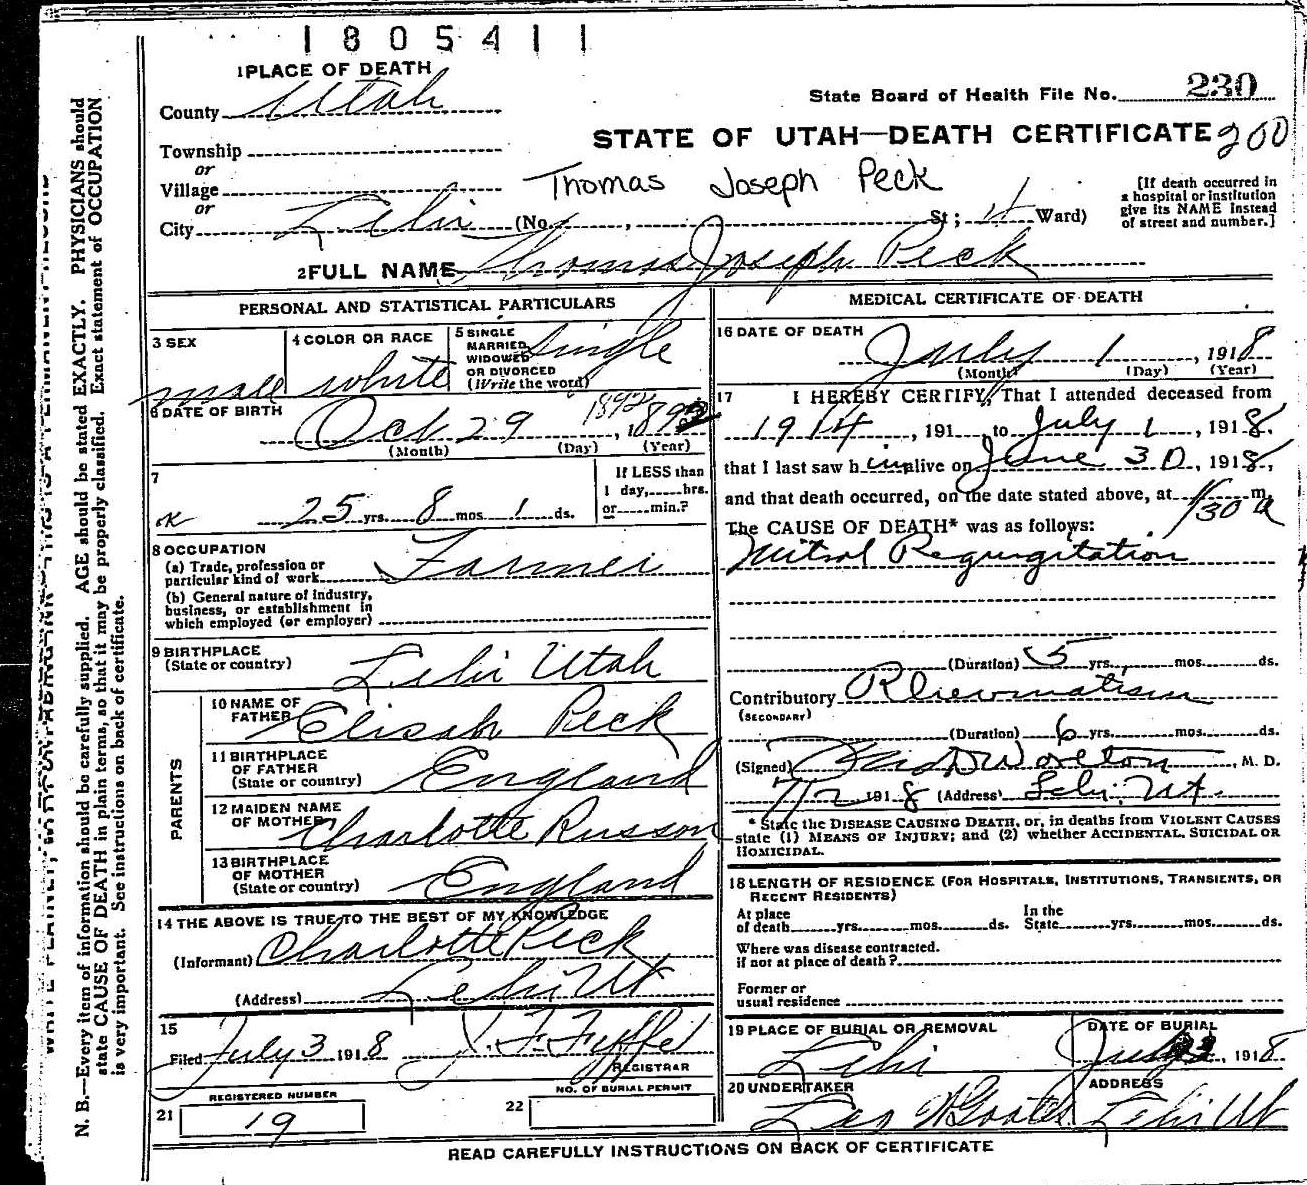 1805411
1 PLACE OF DEATH
County Utah
State Board of Health File No. 230
STATE OF UTAH—DEATH CERTIFICATE 200
Township
or
Village
Thomas Joseph Peck
or
City Lehi (No. , St; 4 Ward)
[If death occurred in
a hospital or institution
give its NAME instead
of street and number.]
2 FULL NAME Thomas Joseph Peck
PERSONAL AND STATISTICAL PARTICULARS
3 SEX
male
4 COLOR OR RACE
white
5 SINGLE
MARRIED
WIDOWED
OR DIVORCED
(Write the word)
Single
6 DATE OF BIRTH
1892
Oct 29 , 189
(Month) (Day) (Year)
7
OK 25 yrs. 8 mos. 1 ds.
If LESS than
1 day,......hrs.
or......min.?
8 OCCUPATION
(a) Trade, profession or
particular kind of work Farmer
(b) General nature of industry,
business, or establishment in
which employed (or employer)
9 BIRTHPLACE
(State or country) Lehi Utah
PARENTS
10 NAME OF
FATHER Elisah Peck
11 BIRTHPLACE
OF FATHER
(State or country) England
12 MAIDEN NAME
OF MOTHER Charlotte Russon
13 BIRTHPLACE
OF MOTHER
(State or country) England
14 THE ABOVE IS TRUE TO THE BEST OF MY KNOWLEDGE
(Informant) Charlotte Peck
(Address) Lehi Ut
15
Filed July 3 1918 J. F. Fyffe
REGISTRAR
REGISTERED NUMBER
21 19
NO. OF BURIAL PERMIT
22
MEDICAL CERTIFICATE OF DEATH
16 DATE OF DEATH
July 1 , 1918
(Month) (Day) (Year)
17 I HEREBY CERTIFY, That I attended deceased from
1914 , 191 to July 1 , 1918,
that I last saw him alive on June 30, 1918,
and that death occurred, on the date stated above, at 1/30 a m.
The CAUSE OF DEATH* was as follows:
Mitral Regurgitation
(Duration) 5 yrs. mos. ds.
Contributory Rheumatism
(SECONDARY)
(Duration) 6 yrs. mos. ds.
(Signed) Worlton , M. D.
7/2 1918 (Address) Lehi, Ut.
* State the DISEASE CAUSING DEATH, or, in deaths from VIOLENT CAUSES
state (1) MEANS OF INJURY; and (2) whether ACCIDENTAL, SUICIDAL OR
HOMICIDAL.
18 LENGTH OF RESIDENCE (FOR HOSPITALS, INSTITUTIONS, TRANSIENTS, OR
RECENT RESIDENTS)
At place
of death......yrs.......mos.......ds.
In the
State......yrs.......mos.......ds.
Where was disease contracted.
if not at place of death?
Former or
usual residence
19 PLACE OF BURIAL OR REMOVAL
Lehi
DATE OF BURIAL
July , 1918
20 UNDERTAKER
Leo Goates
ADDRESS
Lehi Ut
READ CAREFULLY INSTRUCTIONS ON BACK OF CERTIFICATE
N. B.—Every item of information should be carefully supplied. AGE should be stated EXACTLY. PHYSICIANS should
state CAUSE OF DEATH in plain terms, so that it may be properly classified. Exact statement of OCCUPATION
is very important. See instructions on back of certificate.